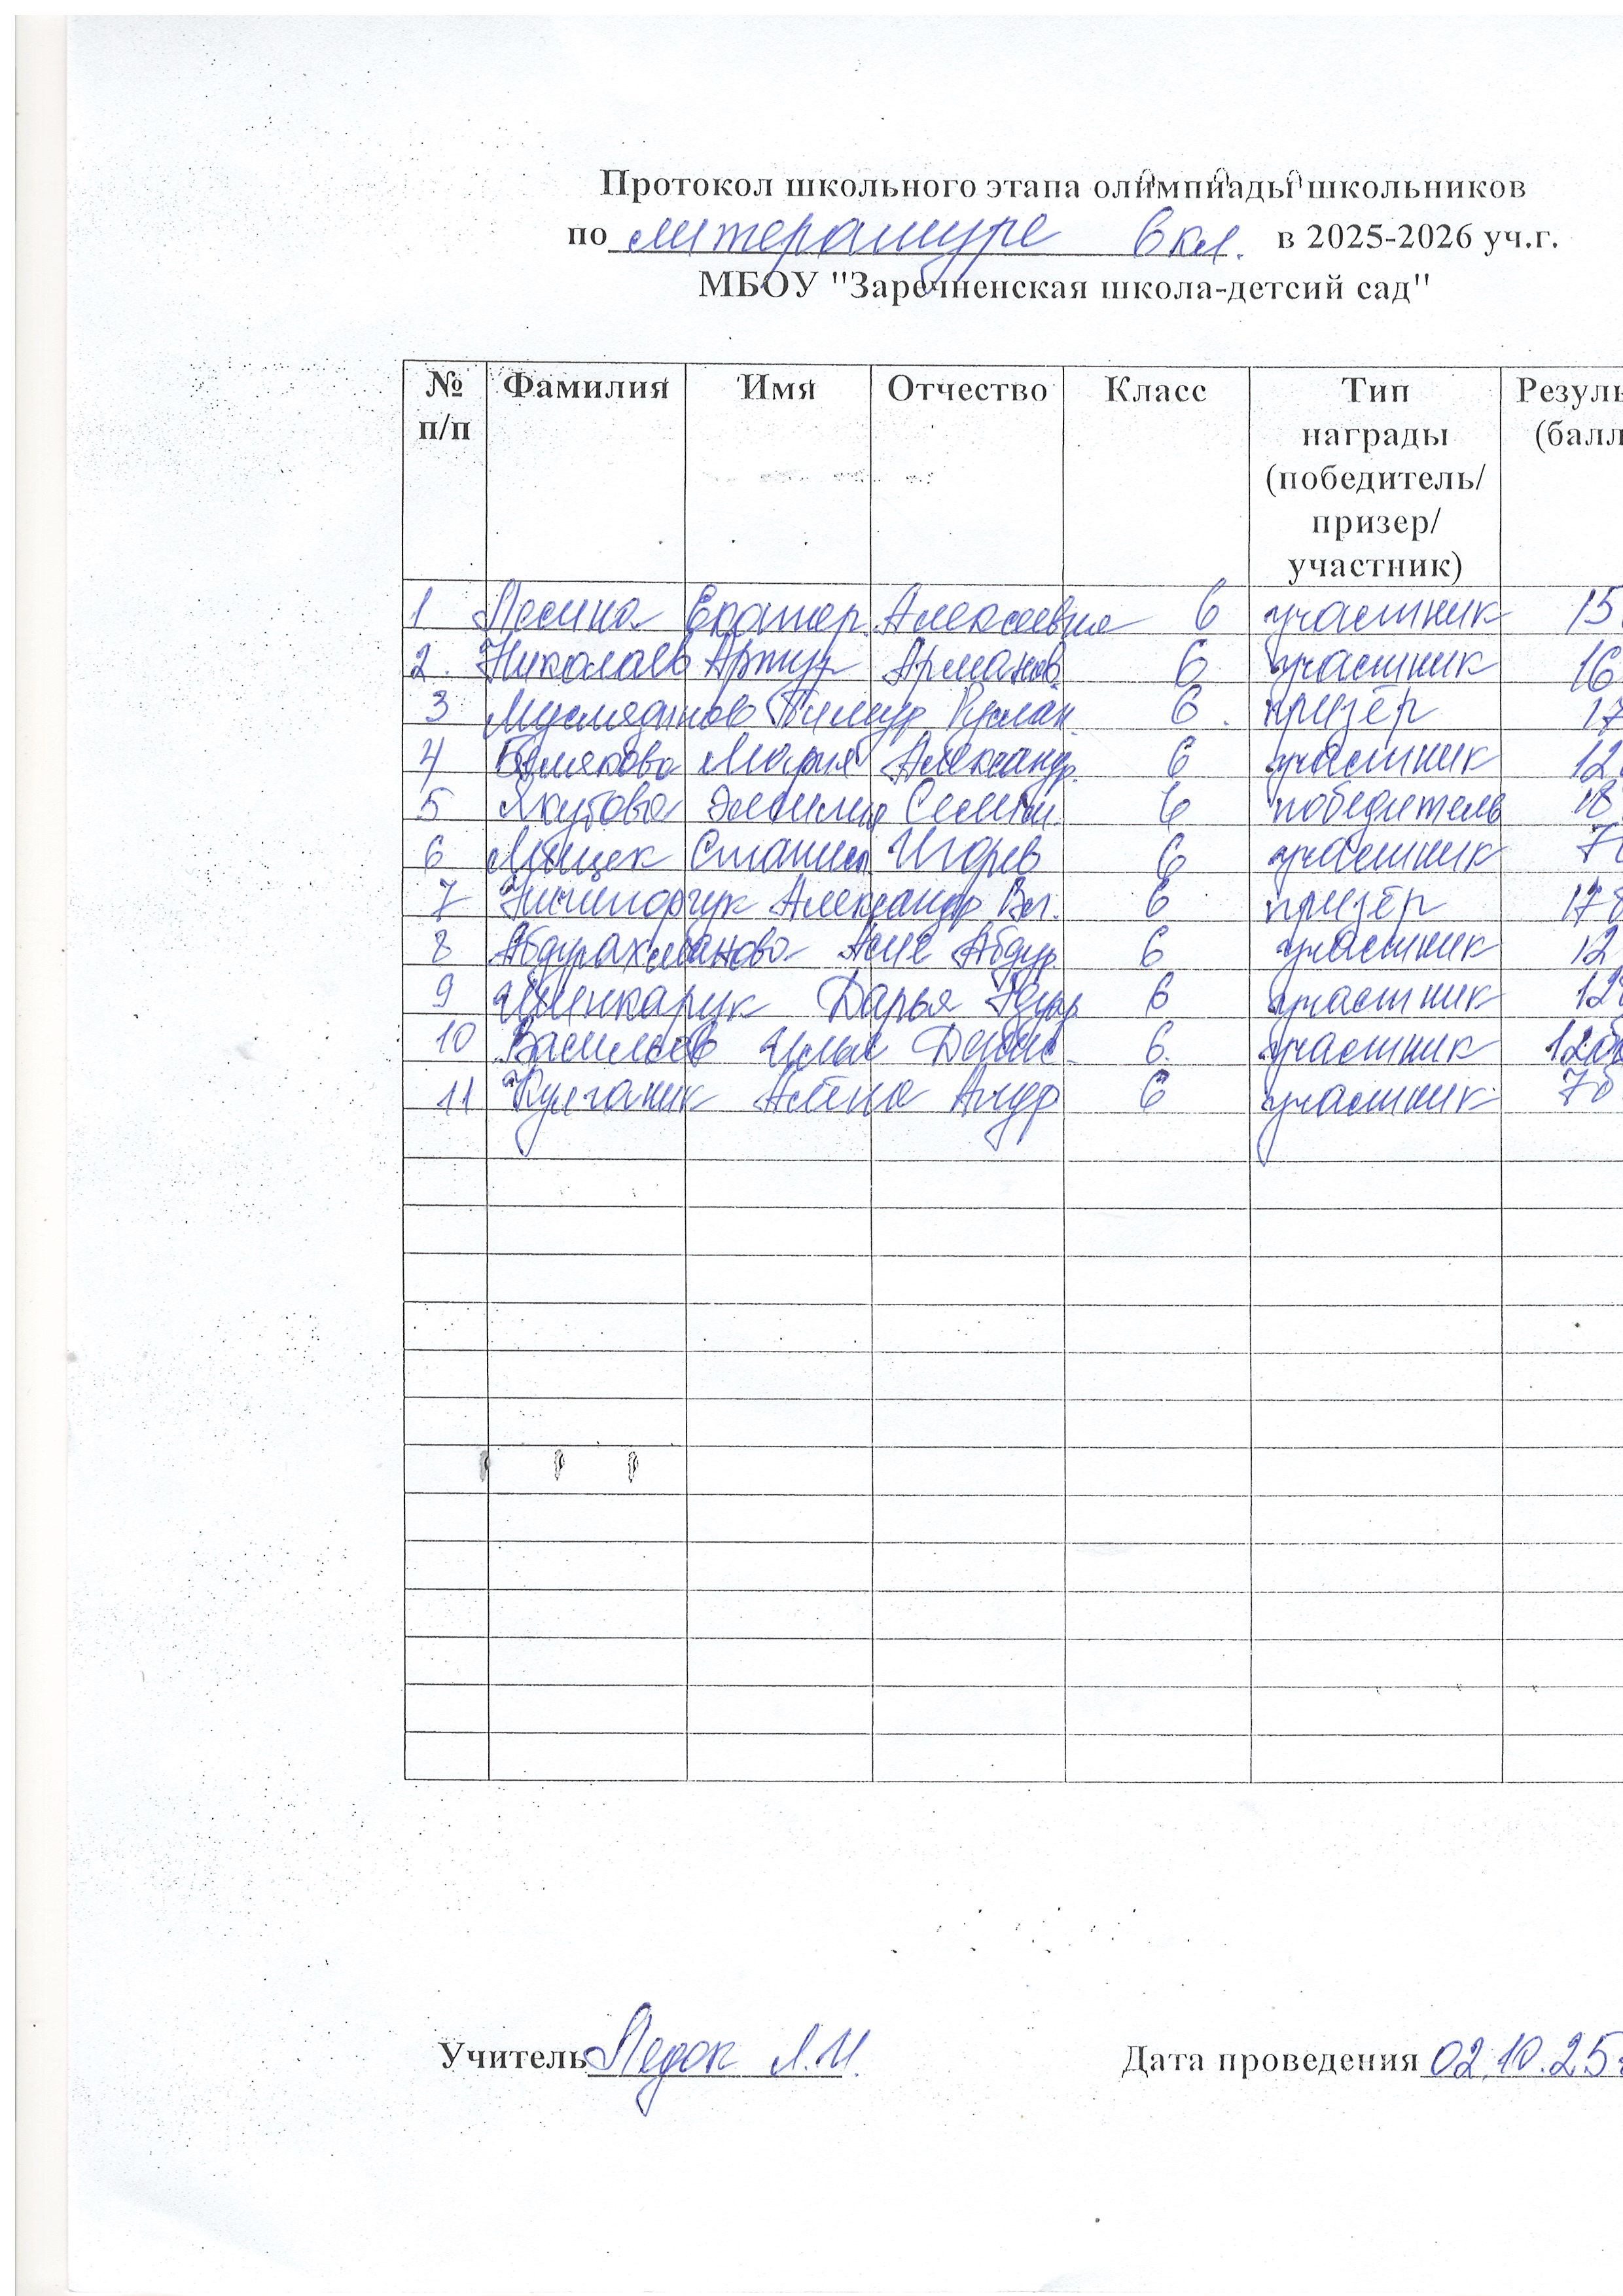 Протокол школьного этапа олимпиады школьников
по литературе 6 кл. в 2025-2026 уч.г.
МБОУ "Заречненская школа-детсий сад"
№ п/п Фамилия Имя Отчество Класс Тип награды (победитель/ призер/ участник) Резуль (балл
1 Лесина Екатер. Алексеевна 6 участник 15
2. Николаев Артур Арманов. 6 участник 16
3 Тимур Руслан. 6. призёр 17
4 Мария Александр. 6 участник 12
5 Якубова Эмилия 6 победитель 18
6 Станисл. Игорев 6 участник 7
7 Ничипорчук Александр Вл. 6 призёр 17
8 Абдурахманова Асие Абдур. 6 участник 12
9 Шинкарук Дарья Эдуар. 6 участник 12
10 Васильев Илья Денис. 6. участник 12
11 Кулганик Алёна Андр 6 участник 7б
Учитель Ледок Л.И. Дата проведения 02.10.25